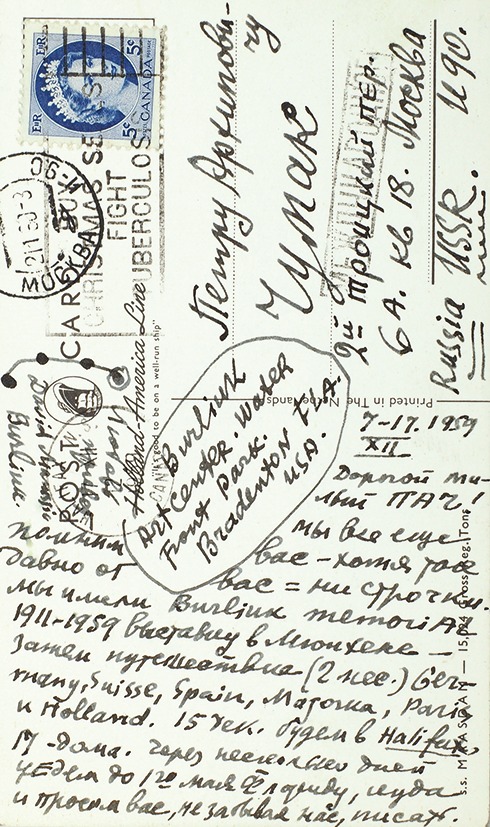 E II R
5¢
5¢
CANADA
E II R
МОСКВА
FIGHT
TUBERCULOSIS
POST CARD
Holland-America Line
"It's good to be on a well-run ship"
Printed in The Netherlands
s.s. MAASDAM — 15,024 Gross Reg. Tons
Петру Архипови-
чу
Чумак
2й Троицкий пер.
6А. кв 18. Москва
И90.
Russia USSR.
Burliuk
Art Center. Water
Front Park.
Bradenton FLA.
USA.
7-17. 1959
XII
Дорогой ми-
лый ПАЧ!
мы все еще
помним вас - хотя
давно от вас = ни строчки.
мы имели Burliuk memorial
1911-1959 выставку в Мюнхене —
Затем путешествие (2 мес.) Ger-
many, Suisse, Spain, Majorca, Paris
и Holland. 15 дек. будем в Halifax
17 - дома. Через несколько дней
уедем до 1го мая во Флориду, куда
и просим вас, не забывая нас, писать.
David
Burliuk.